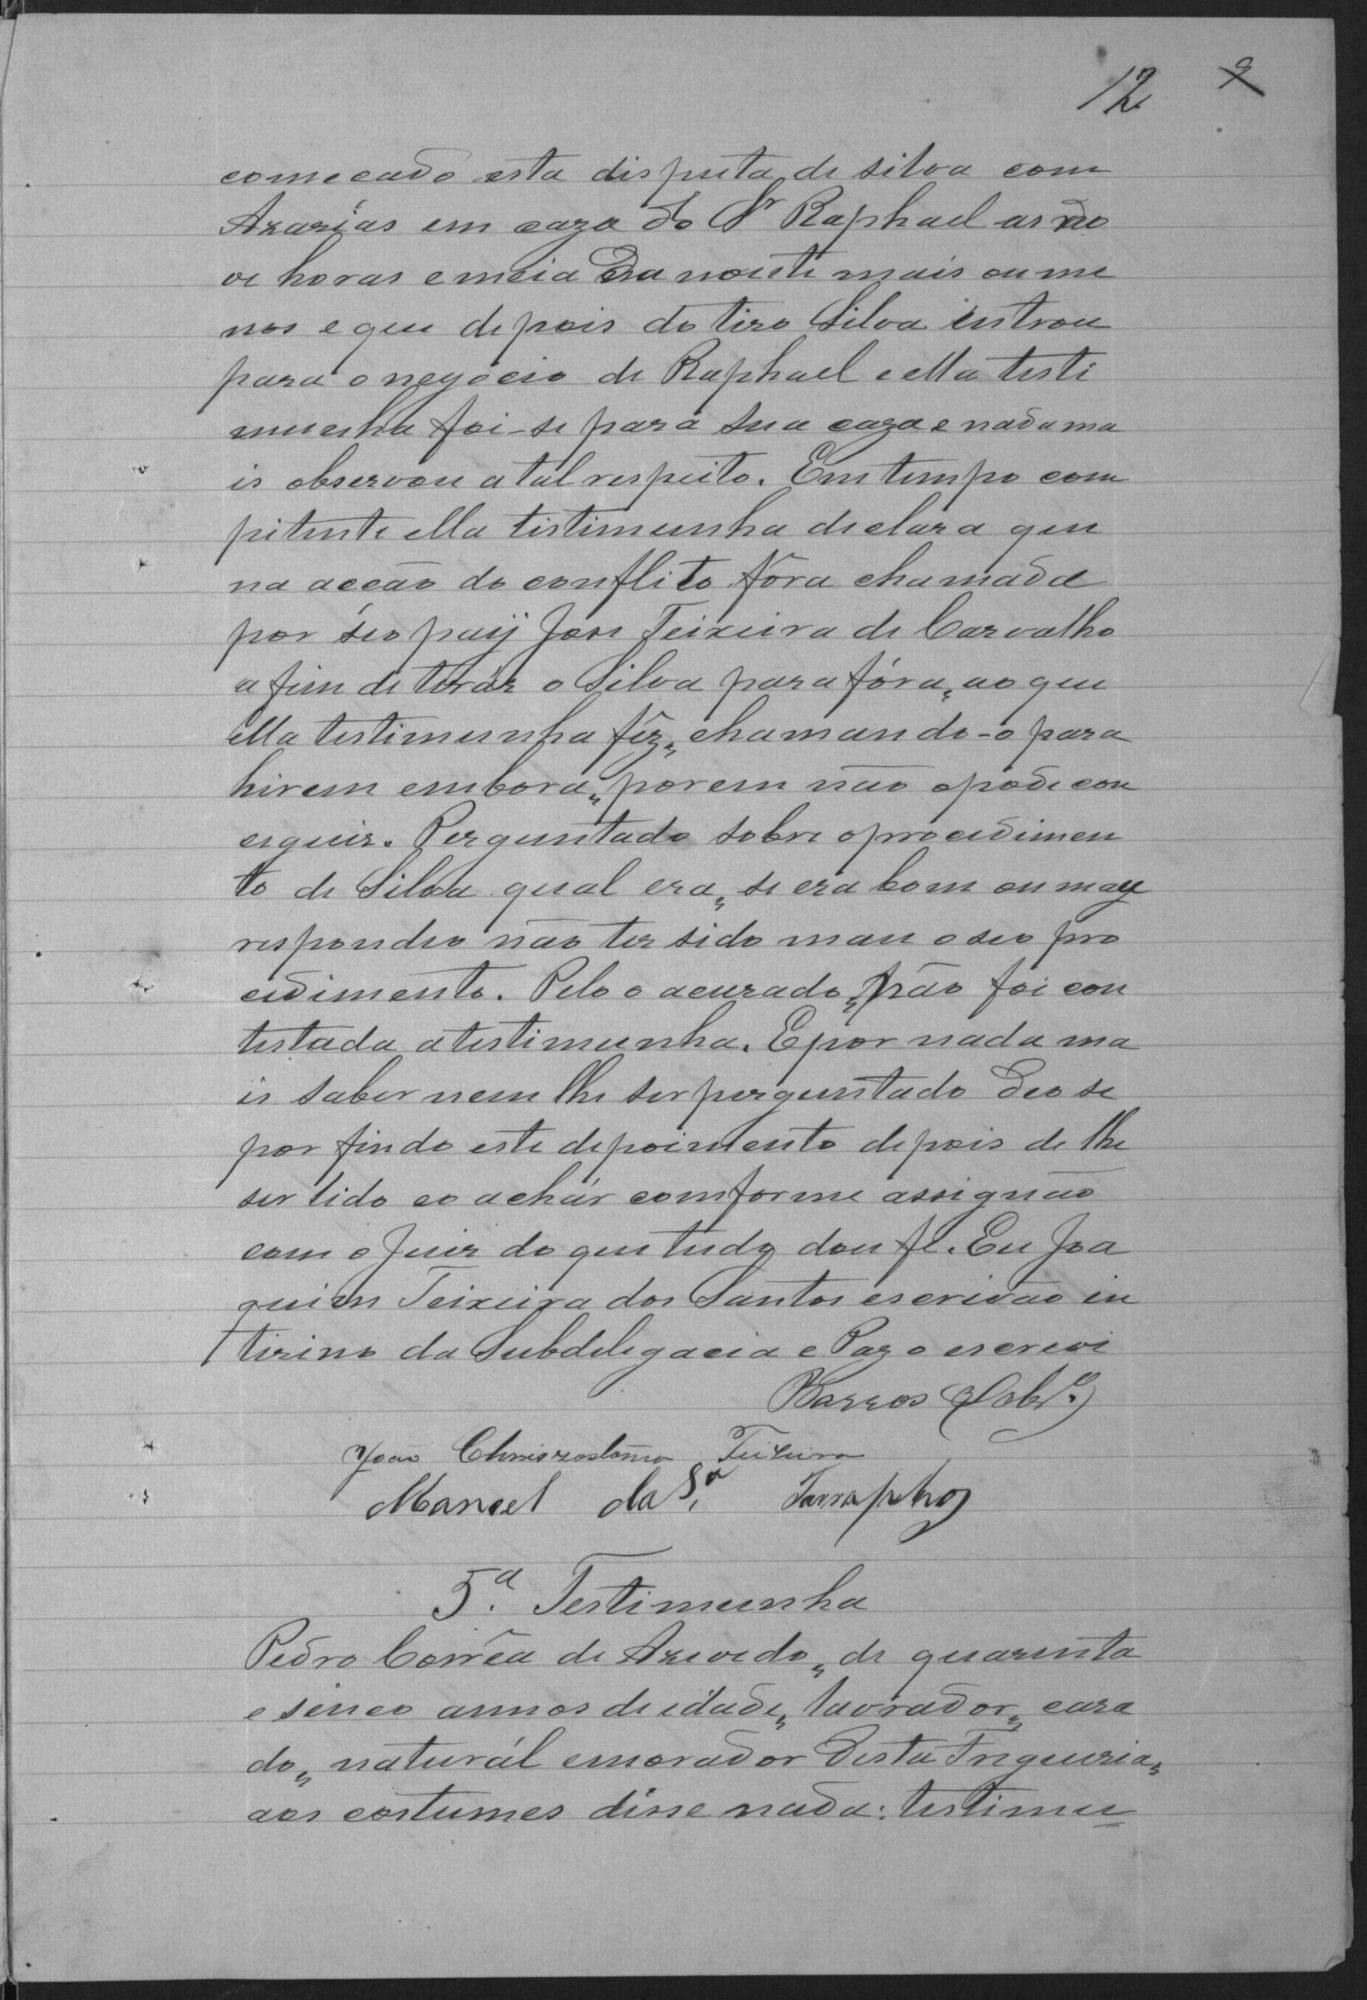 12 9
comecado esta disputa de silva com
Azarias em caza do Sr Raphael as no
ve horas e meia da noute mais ou me
nos e que depois do tiro Silva entrou
para o negocio de Raphael e ella testi
munha foi-se para sua caza e nada ma
is observou a tal respeito. Em tempo com
pitente ella testimunha declara que
na accão do conflito fôra chamada
por séo paÿ Jose Teixeira de Carvalho
a fim de tirár o Silva para fóra, ao que
ella testimunha fêz, chamando-o para
hirem embora, porem não o pode con
seguir. Perguntado sobre o procedimen
to de Silva qual era, se era bom ou mau
respondeo não ter sido mau o seo pro
cedimento. Pelo o acuzado, não foi con
testada a testimunha. E por nada ma
is saber nem lhe ser perguntado deo se
por findo este depoimento depois de lhe
ser lido eo achár comforme assignão
com o Juiz do que tudo dou fé. Eu Joa
quim Teixeira dos Santos escrivão in
tirino da Subdelegacia e Paz o escrevi
Barros
João Chrisostomo Teixeira
Manoel da Sa
5a. Testimunha
Pedro Corrêa de Azevedo, de quarenta
e sinco annos de idade, lavrador, caza
do, naturál e morador desta Freguezia,
aos costumes disse nada: testimu